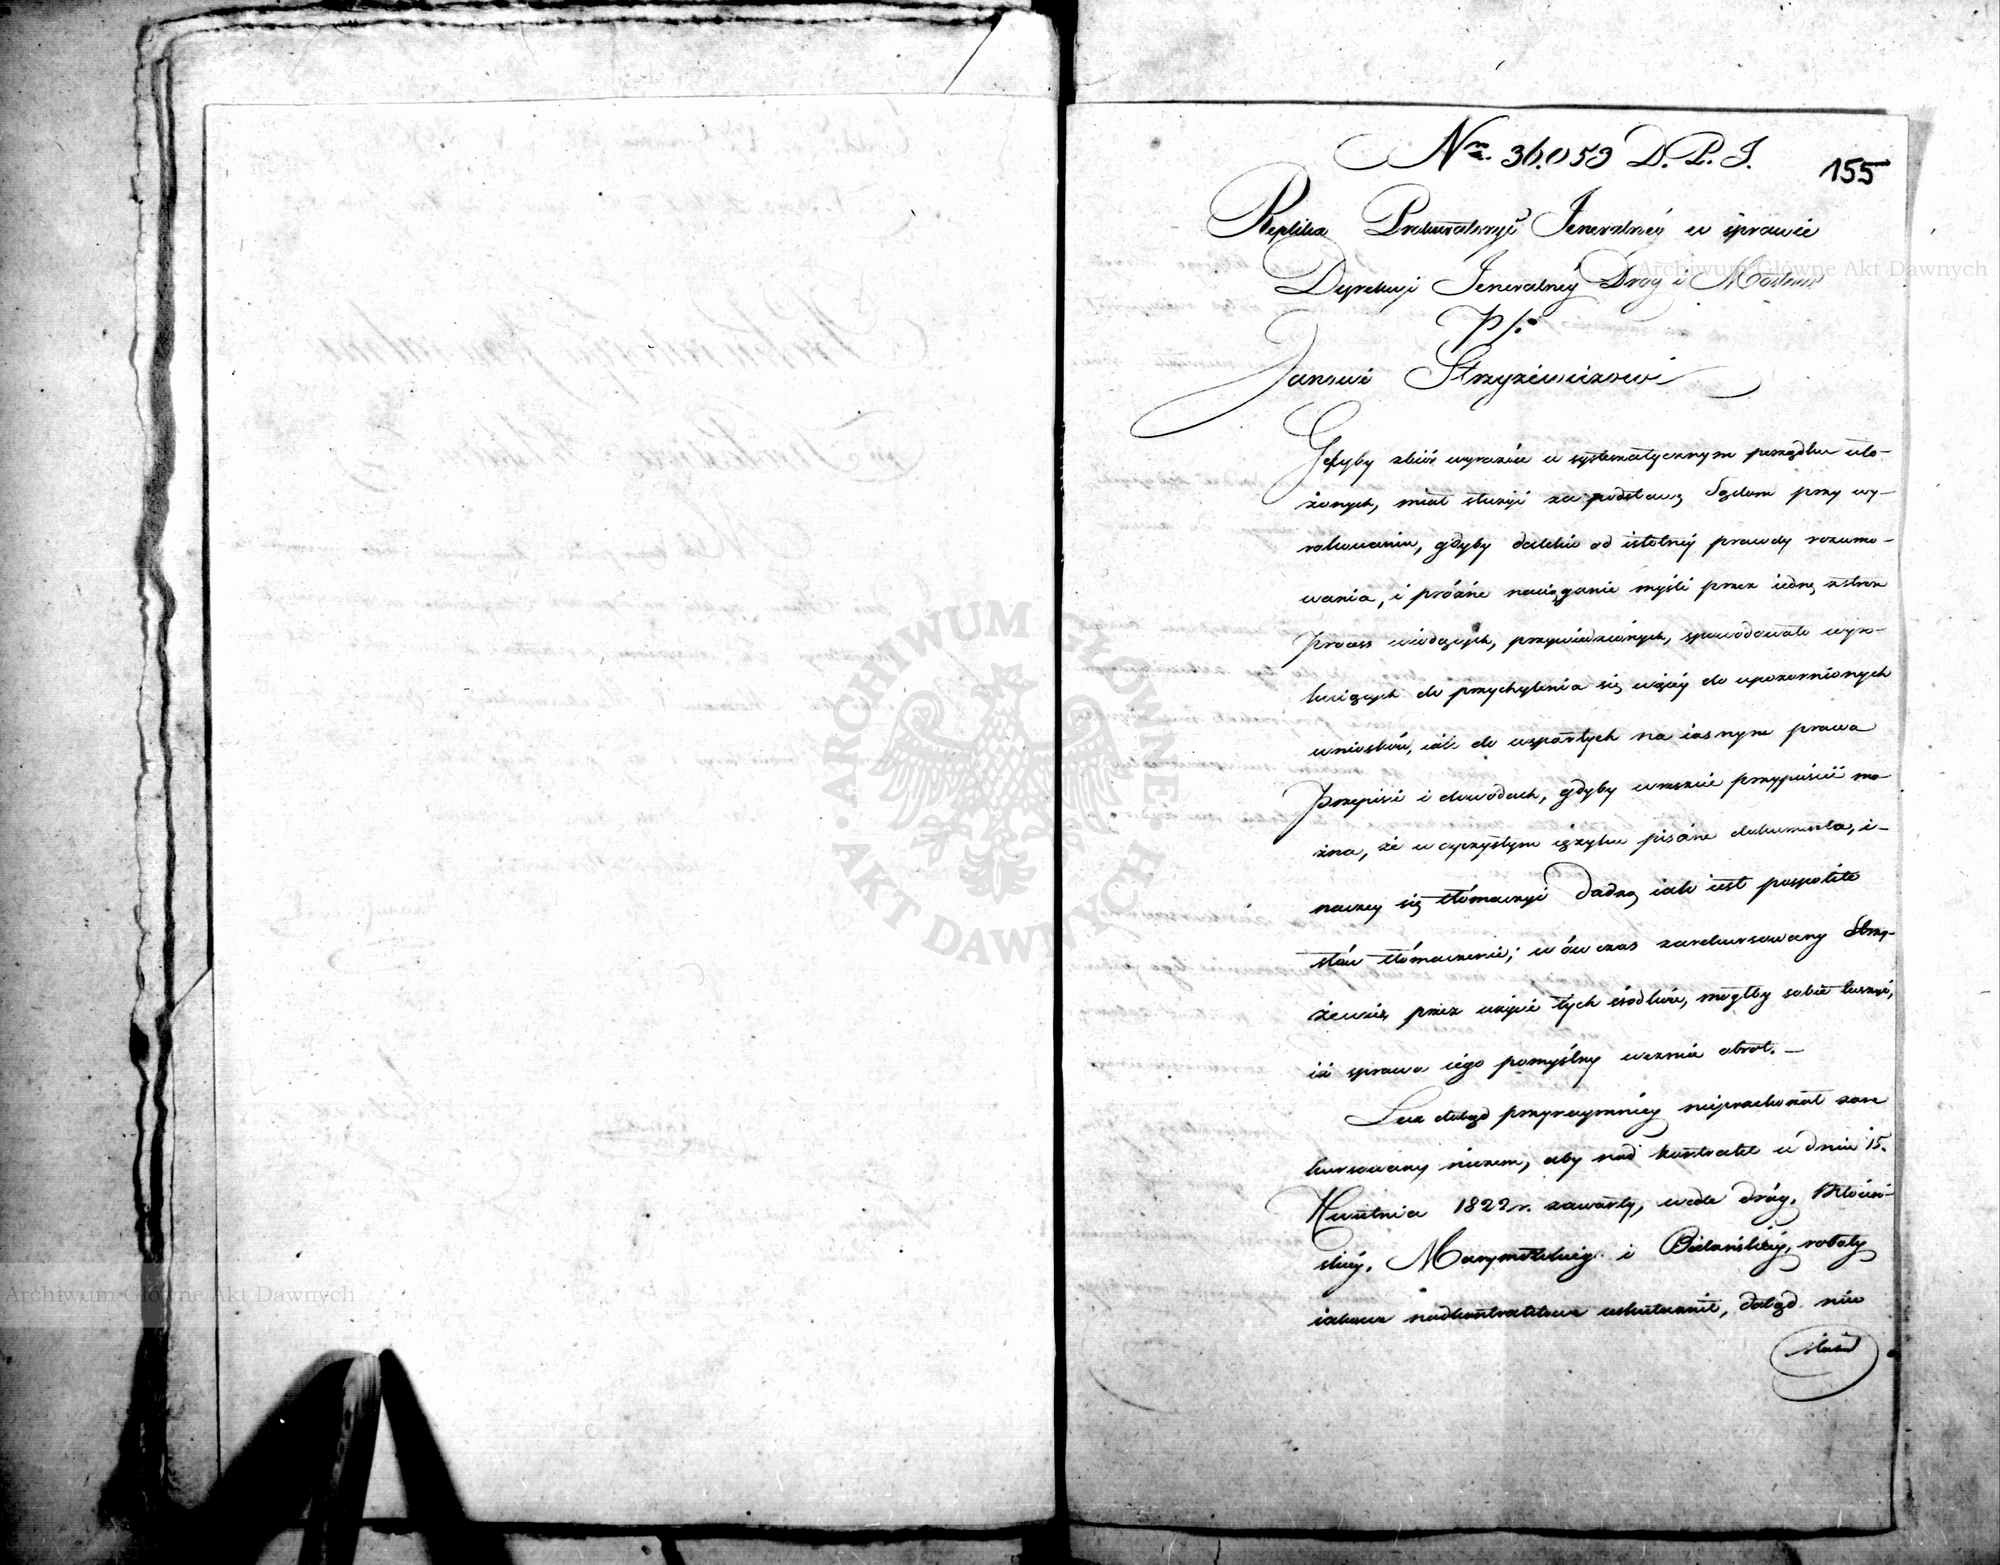 Nr. 36.053 D. P. J.
155
Replika Prokuratoryi Jeneralnéy w sprawie
Dyrekcyi Jeneralnéy Dróg i Mostów
P/.
Janowi Strzyżewiczowi
Gdyby zbiór wyrazów w systematycznym porządku uło-
żonych, miał służyć za podstawę Sądom przy wy-
rokowaniu, gdyby dalekie od istotnéy prawdy rozumo-
wania, i próżne naciąganie myśli przez iedną z stron
Process wiodących, przywiedzionych, spowodowało wyro-
kuiących do przychylenia się więcéy do upozornionych
wniosków, iak do wspartych na iasnym prawa
przepisie i dowodach, gdyby wreszcie przypuścić mo-
żna, że w czystym ięzyku pisane dokumenta, i-
naczey się tłómaczyć dadzą iak iest pospolite
słów tłómaczenie; w ów czas zarekursowany Strzy-
żewicz przez użycie tych środków, mógłby sobie tuszyć,
iż sprawa iego pomyślny weźmie obrot. –
Lecz dotąd przynaymniey nieprzekonał zare
kursowany niczem, aby nad kontrakt w dniu 15.
Kwietnia 1822 r. zawarty, wedle dróg, Młociń-
skiéy, Marymontskiéy i Bielańskiéy, roboty
iakowe nadkontraktowe uskutecznił, dotąd nie
Archiwum Główne Akt Dawnych
Archiwum Główne Akt Dawnych
ARCHIWUM GŁÓWNE
AKT DAWNYCH